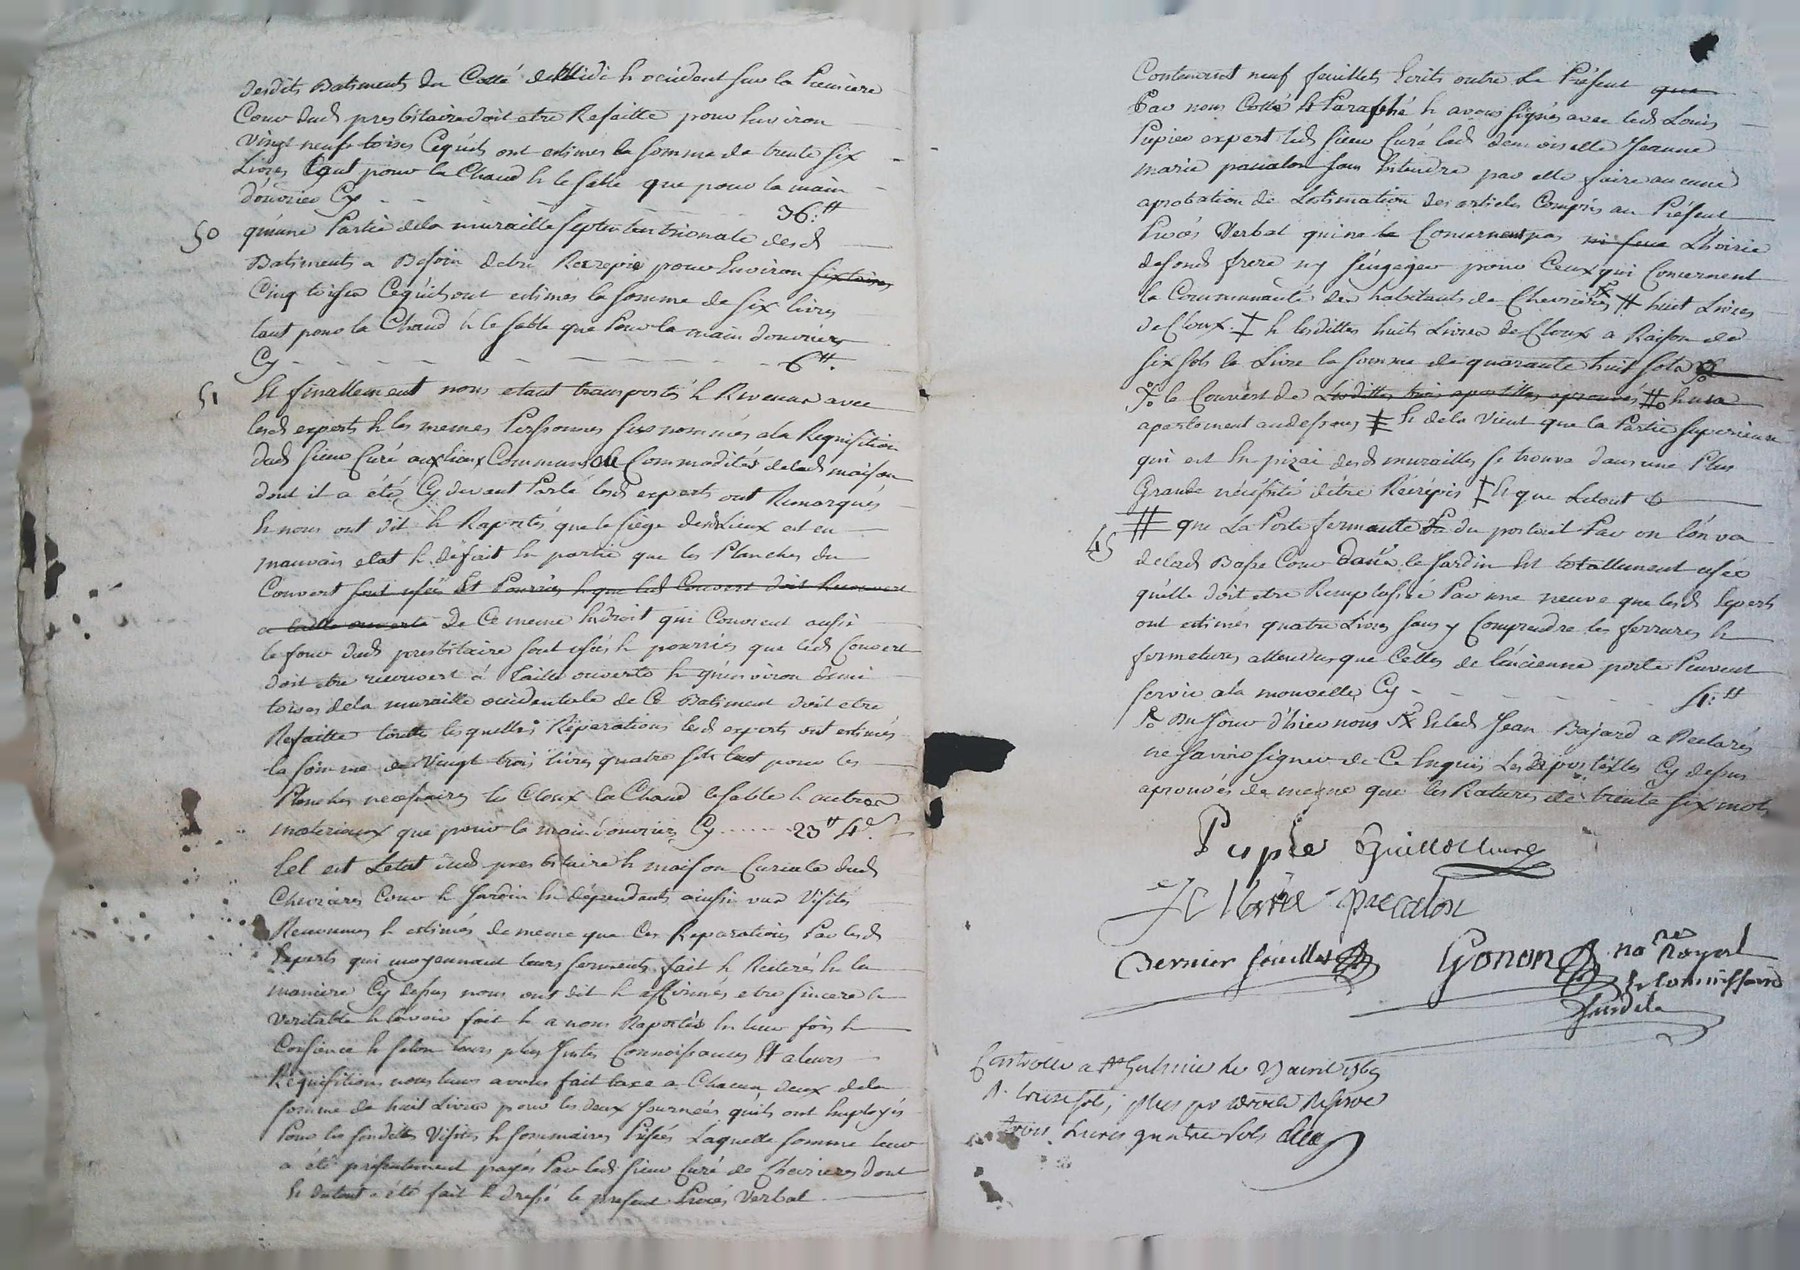 desdits Batiments du Cotté de Midi & occident sur la Premiere
Cour dud. presbitaire doit etre Refaitte pour Environ
vingt neufs toises Cequ'ils ont estimés la somme de trente six
Livres tant pour la Chaud & le sable que pour la main
d'ouvrier Cy - - - - - - 36.tt
50 qu'une Partie de la muraille septentrionale desd.
Batiments a Besoin detre Recrepie pour Environ six toises
Cinq toises Cequ'ils ont estimés la somme de six livres
tant pour la Chaud & le sable que Pour la main d'ouvrier
Cy - - - - - - 6tt.
51 Et finallement nous etant transportés & Revenus avec
lesd. experts & les memes Personnes sus nommés a la Requisition
dud. sieur Curé aux lieux Communs ou Commodités de lad. maison
dont il a été Cy devant Parlé lesd. experts ont Remarqués
& nous ont dit & Raportés que le siege desd. Lieux est en
mauvais etat & défait En partie que les Planches du
Couvert sont usées Et Pourries & que led. Couvert doit Recouvert
a taille ouverte de Ce meme Endroit qui Couvrent aussi
le four dud. presbitaire sont usés & pourries que led. Couvert
doit etre recouvert à Taille ouverte & qu'environ demi
toises de la muraille occidentale de Ce Batiment doit etre
Refaitte toutte lesquelles Réparations lesd. experts ont estimés
la somme de vingt trois livres quatre sols tant pour les
Planches necessaires les Cloux la Chaud le sable & autres
materieaux que pour la main d'ouvrier Cy ...... 23tt 4s.
Tel est L'etat dud. presbitaire & maison Curiale dud.
Chevrieres Cour & Jardin En dépendants ainsi vus Visités
Reconnus & estimés de meme que les Reparations Par lesd.
Experts qui moyennant leurs serments fait & Reiteré En la
maniere Cy dessus nous ont dit & affirmés etre sincere &
veritable & lavoir fait & a nous Raportés En leur fois &
Consience & selon leurs plus Justes Connoissances Et a leurs
Requisition nous leurs avons fait taxe a Chacun deux de la
somme de huit Livres pour les deux Journées qu'ils ont Employés
Pour les susdittes Visites & sommaires Prisées Laquelle somme leur
a été présentement payée Par led. sieur Curé de Chevrieres dont
Et du tout a été fait & dressé le present Procés Verbal
Contenant neuf feuillets Ecrits outre Le Présent que
Par nous Cotté & Paraphé & avons signés avec led. Louis
Pupier expert led. sieur Curé lad. demoiselle Jeanne
marie pascalon sans Entendre par elle faire aucune
aprobation de Lestimation des articles Compris au Présent
Procés Verbal qui ne la Concernent pas ni feue L'hoirie
de son d. frere n'y s'engager pour Ceux qui Concernent
la Communauté des habitants de Chevrieres # huit Livres
de Cloux. & lesdittes huits Livres de Cloux a Raison de
six sols la Livre la somme de quarante huit sols
le Couvert de Lesdittes trois apostilles aprouvés # & un
apartement au dessous Et de la Vient que la Partie superieure
qui est En pizai desd. murailles se trouve dans une Plus
Grande nécéssité d'être Récrépis Et que Letout
45 # que La Porte fermante du portail Par ou l'on va
de lad. Basse Cour dans le Jardin Est totallement usée
qu'elle doit etre Remplassée Par une neuve que lesd. Experts
ont estimés quatre Livres sans y Comprendre les ferrures &
fermetures attendus que Celles de l'encienne porte Peuvent
servir a la nouvelle Cy - - - - - 4.tt
du Jour d'hier nous Et led. Jean Bajard a Declarés
ne savoir signer de Ce Enquis Les apostilles Cy dessus
aprouvés de meme que les Ratures de trente six mots
Pupier Guillot Curé
J Marie pascalon
Dernier feuillet Gonon nore Royal
& Commissaire
susdit
Controllé a St Galmier le avril
R. treize sols, plus pr droits Reservé
trois Livres quatre sols